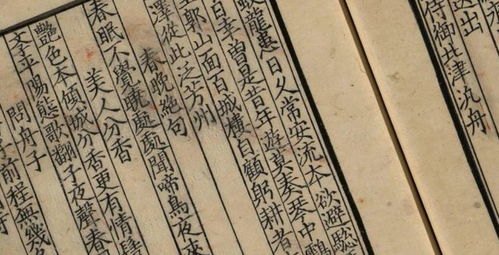 送出
侍御北津汎舟
蛟龍患日久常安流本欲避驄
日幸曾是昔年遊莫奏琴中鶴
耶山面百城樓自顧躬耕者
澤從此泛芳州
春晚絕句
春眠不覺曉處處聞啼鳥夜來
美人分香
艷色本傾城分香更有情髻
平陽態歌翻子夜聲春
問舟子
前程無幾